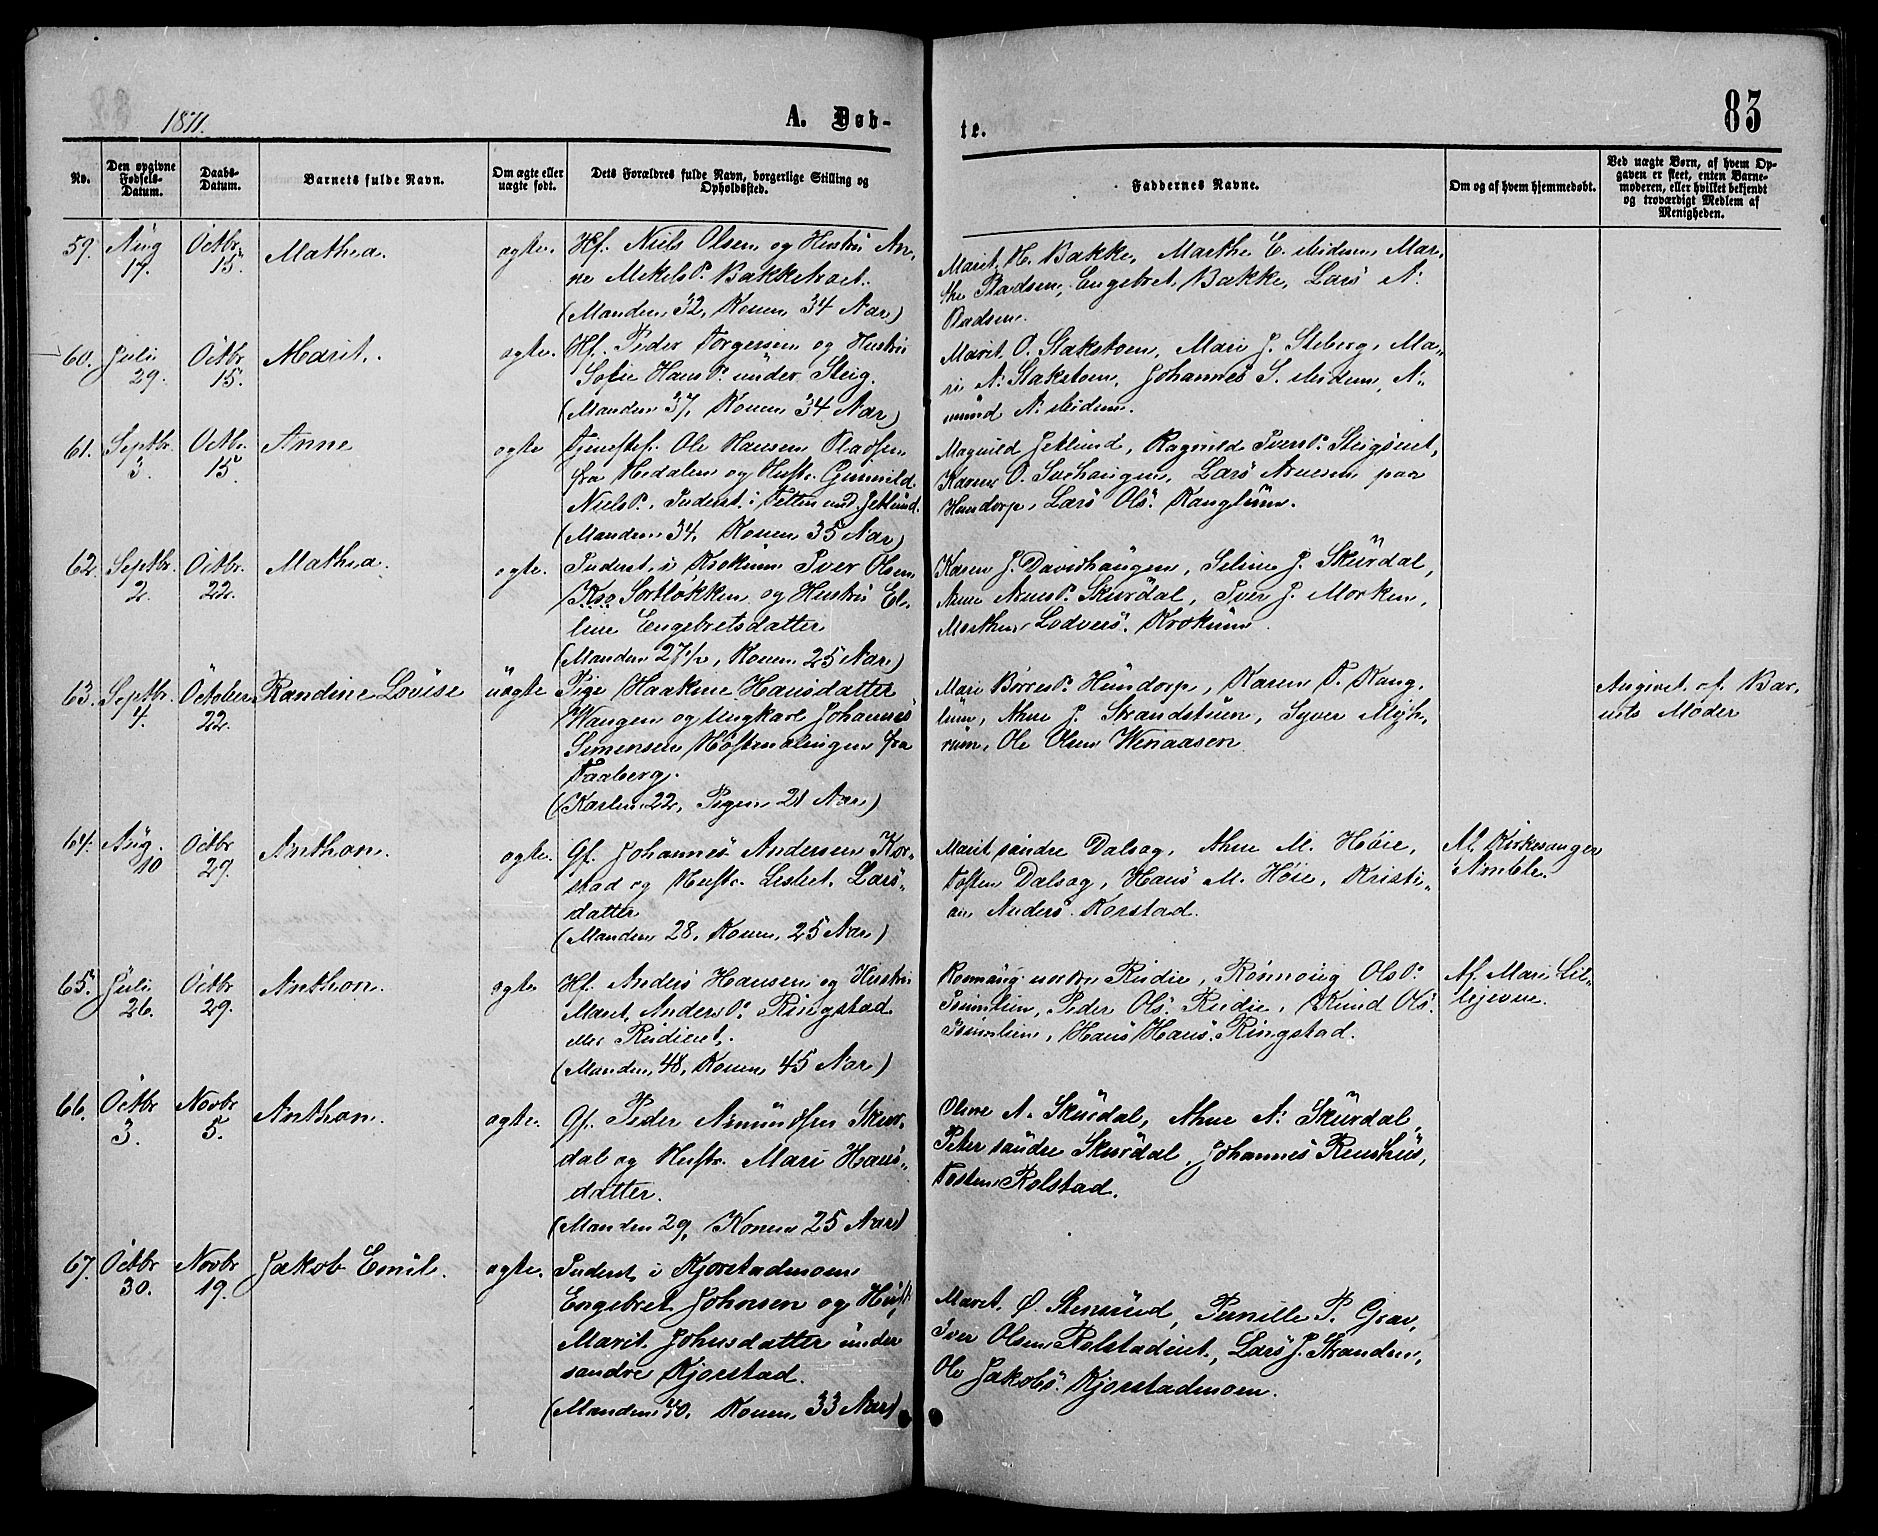 1871.
A. Døb-
te.
83
No.
Den opgivne
Fødsels-
Datum.
Daabs-
Datum.
Barnets fulde Navn.
Om ægte eller
uægte født.
Dets Forældres fulde Navn, borgerlige Stilling og
Opholdssted.
Faddernes Navne.
Om og af hvem hjemmedøbt.
Ved uægte Børn, af hvem Op-
gaven er skeet, enten Barne-
moderen, eller hvilket bekjendt
og troværdigt Medlem af
Menigheden.
59. Aug 17. Octbr 15. Mathea. ægte. Hf. Niels Olsen og Hustru An-
ne Mikels D. Bakketrøet.
(Manden 32, Konen 34 Aar)
Marit H. Bakke, Marthe E. Midem, Mar-
the Pladsen, Engebret Bakke, Lars N.
Pladsen.
60. Juli 29. Octbr 15. Marit. ægte. Hf. Peder Torgersen og Hustru
Sofie Hans D. under Steig.
(Manden 37, Konen 34 Aar)
Marit O. Stakstoen, Mari J. Steberg, Ma-
ri A. Stakstoen, Johannes S. Midem, A-
mund A. Midem.
61. Septbr. 3. Octbr. 15. Anne ægte Tjenestef. Ole Hansen Pladsen
fra Hedalen og Hustr. Gunnild
Niels D. Inderst i Tetten und. Jetlund.
(Manden 34, Konen 35 Aar)
Magnild Jetlund, Ragnild Ivers D. Steigseiet,
Karen O. Sorhaugen, Lars Arnesen paa
Hundorp, Lars Ols. Kanglum.
62. Septbr. 2. Octbr. 22. Mathea. ægte. Inderst i Krokum Iver Olsen
Kso Sortløkken og Hustru El-
line Engebretsdatter
(Manden 27½, Konen 25 Aar)
Karen J. Davidhaugen, Seline J. Skurdal,
Anne Arnes D. Skurdal, Iver J. Morken,
Mathes Lodvers. Krokum
63. Septbr. 4. October 22. Randine Lovise uægte Pige Haakine Hansdatter
Wangen og Ungkarl Johannes
Simensen Høstmælingen fra
Faaberg.
(Karlen 22, Pigen 21 Aar)
Mari Børres D. Hundorp, Karen P. Kang-
lum, Anne J. Strandstuen, Syver Myh-
rum, Ole Olsen Wenaasen
Angivet af Bar-
nets Moder
64. Aug. 10 Octbr 29. Anthon. ægte. Gf. Johannes Andersen Kor-
stad og Hustr. Lisbet Lars-
datter
(Manden 28, Konen 25 Aar)
Marit søndre Dalsæg, Anne M. Høie,
Tosten Dalsæg, Hans M. Høie, Kristi-
an Anders. Korstad.
Af Kirkesanger
Amble.
65. Juli 26. Octbr 29. Anthon. ægte Hf. Anders Hansen og Hustru
Marit Anders D. Ringstad
eller Rudieiet.
(Manden 48, Konen 45 Aar)
Ronnaug nordre Rudie, Rønnoug Ols D.
Tunlien, Peder Ols. Rudie, Knud Ols.
Tunlien, Hans Hans. Ringstad.
Af Mari Lil-
lejevne.
66. Octbr 3. Novbr 5. Anthon. ægte. Gf. Peder Amundsen Skur-
dal og Hustr. Mari Hans-
datter.
(Manden 29, Konen 25 Aar)
Oline A. Skurdal, Anne A. Skurdal,
Peter søndre Skurdal, Johannes Rushus,
Tosten Rolstad.
67. Octbr 30. Novbr 19. Jakob Emil. ægte. Inderst i Kjorstadmoen
Engebret Johnsen og Hust.
Marit Johnsdatter under
søndre Kjorstad.
(Manden 40, Konen 33 Aar)
Marit Ø. Stensrud, Pernille P. Grav,
Iver Olsen Rolstadeiet, Lars J. Stranden,
Ole Jakobs. Kjorstadmoen.